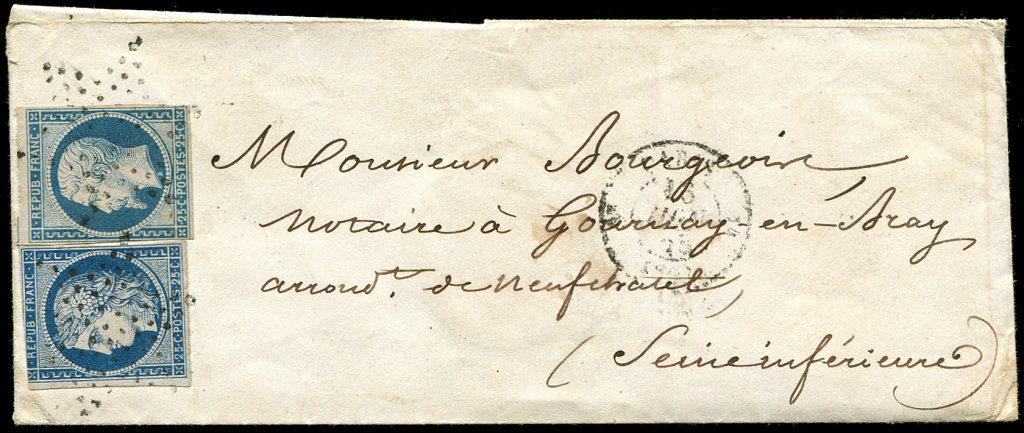 Monsieur Bourgeois,
Notaire à Gournay en-Bray
arrondt. de Neufchatel,
(Seine inférieure)
REPUB·FRANC·
25·C·POSTES·25·C·
REPUB·FRANC·
25·C·POSTES·25·C·